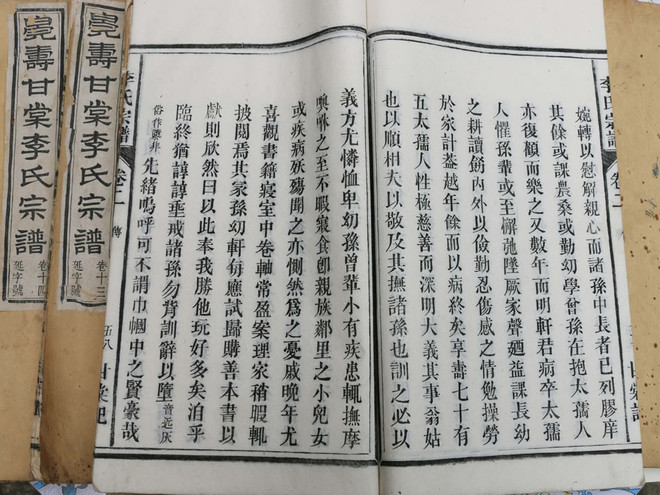 李氏宗譜 卷二
婉轉以慰解親心而諸孫中長者已列膠庠
其餘或課農桑或勤幼學曾孫在抱太孺人
亦復顧而樂之又數年而明軒君病卒太孺
人懼孫輩或至懈弛墜厥家聲廼益課長幼
之耕讀飭內外以儉勤忍傷感之情勉操勞
於家計葢越年餘而以病終矣享壽七十有
五太孺人性極慈善而深明大義其事翁姑
也以順相夫以敬及其撫諸孫也訓之必以
義方尤憐恤卑幼孫曾輩小有疾患輒撫摩
噢咻之至不暇寢食卽親族鄰里之小兒女
或疾病殀殤聞之亦惻然為之憂戚晚年尤
喜觀書籍寢室中卷軸常盈案理家稍暇輒
披閱焉其家孫幼軒每應試歸購善本書以
獻則欣然曰以此奉我勝他玩好多矣洎乎
臨終猶諄諄垂戒諸孫勿背訓辭以墮音近灰
俗作隳非先緒嗚呼可不謂巾幗中之賢豪哉
李氏宗譜 卷二 傳 五八
壽甘棠李氏宗譜 卷十三 延字號
壽甘棠李氏宗譜 卷十四 延字號